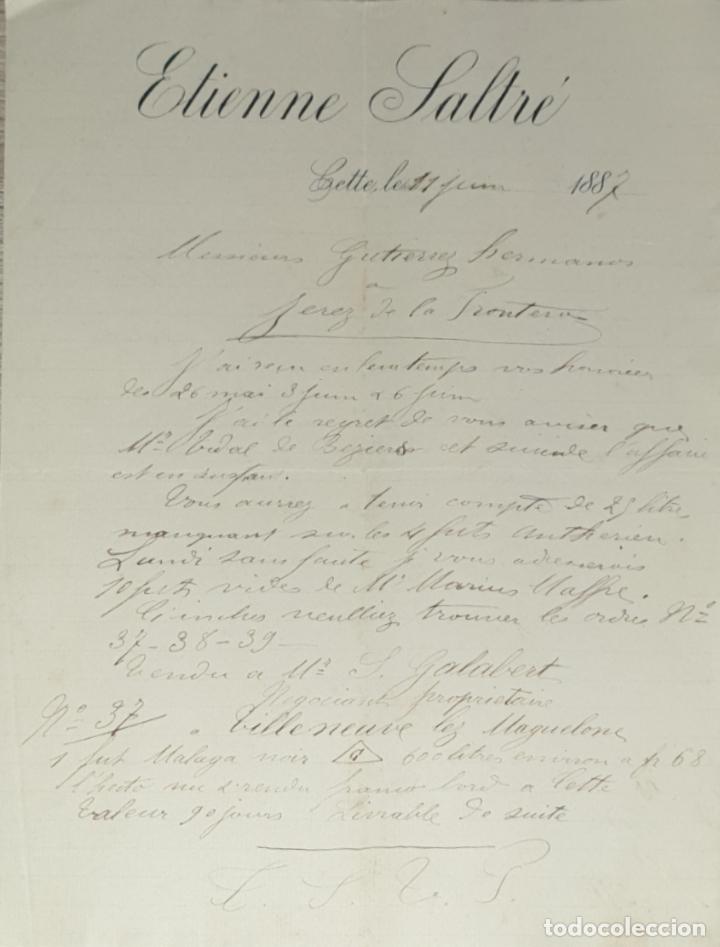 Etienne Saltré
Cette, le 11 juin 1887
Messieurs Gutierrez hermanos
a
Jerez de la Frontera
J'ai reçu en leur temps vos honorées
des 26 mai 3 juin & 6 juin
J'ai le regret de vous aviser que
Mr. Vidal de Beziers est suicidé l'affaire
est en
Vous aurrez a tenir compte de 25 litres
manquant sur les 4 futs antherieu.
Lundi sans faute j vous adresserois
10 futs vides de Mr Marius Maffre.
Ci inclus veulliez trouver les ordres No
37-38-39-
Vendu a Mr. S. Galabert
Negociant propriétaire
No 37 a Villeneuve lez Maguelone
1 fut Malaga noir 600 litres environ a fr 68
l'hecto nu & rendu franco bord a Cette
Valeur 90 jours Livrable de suite
T. S. V. P.
todocoleccion
todocoleccion.net